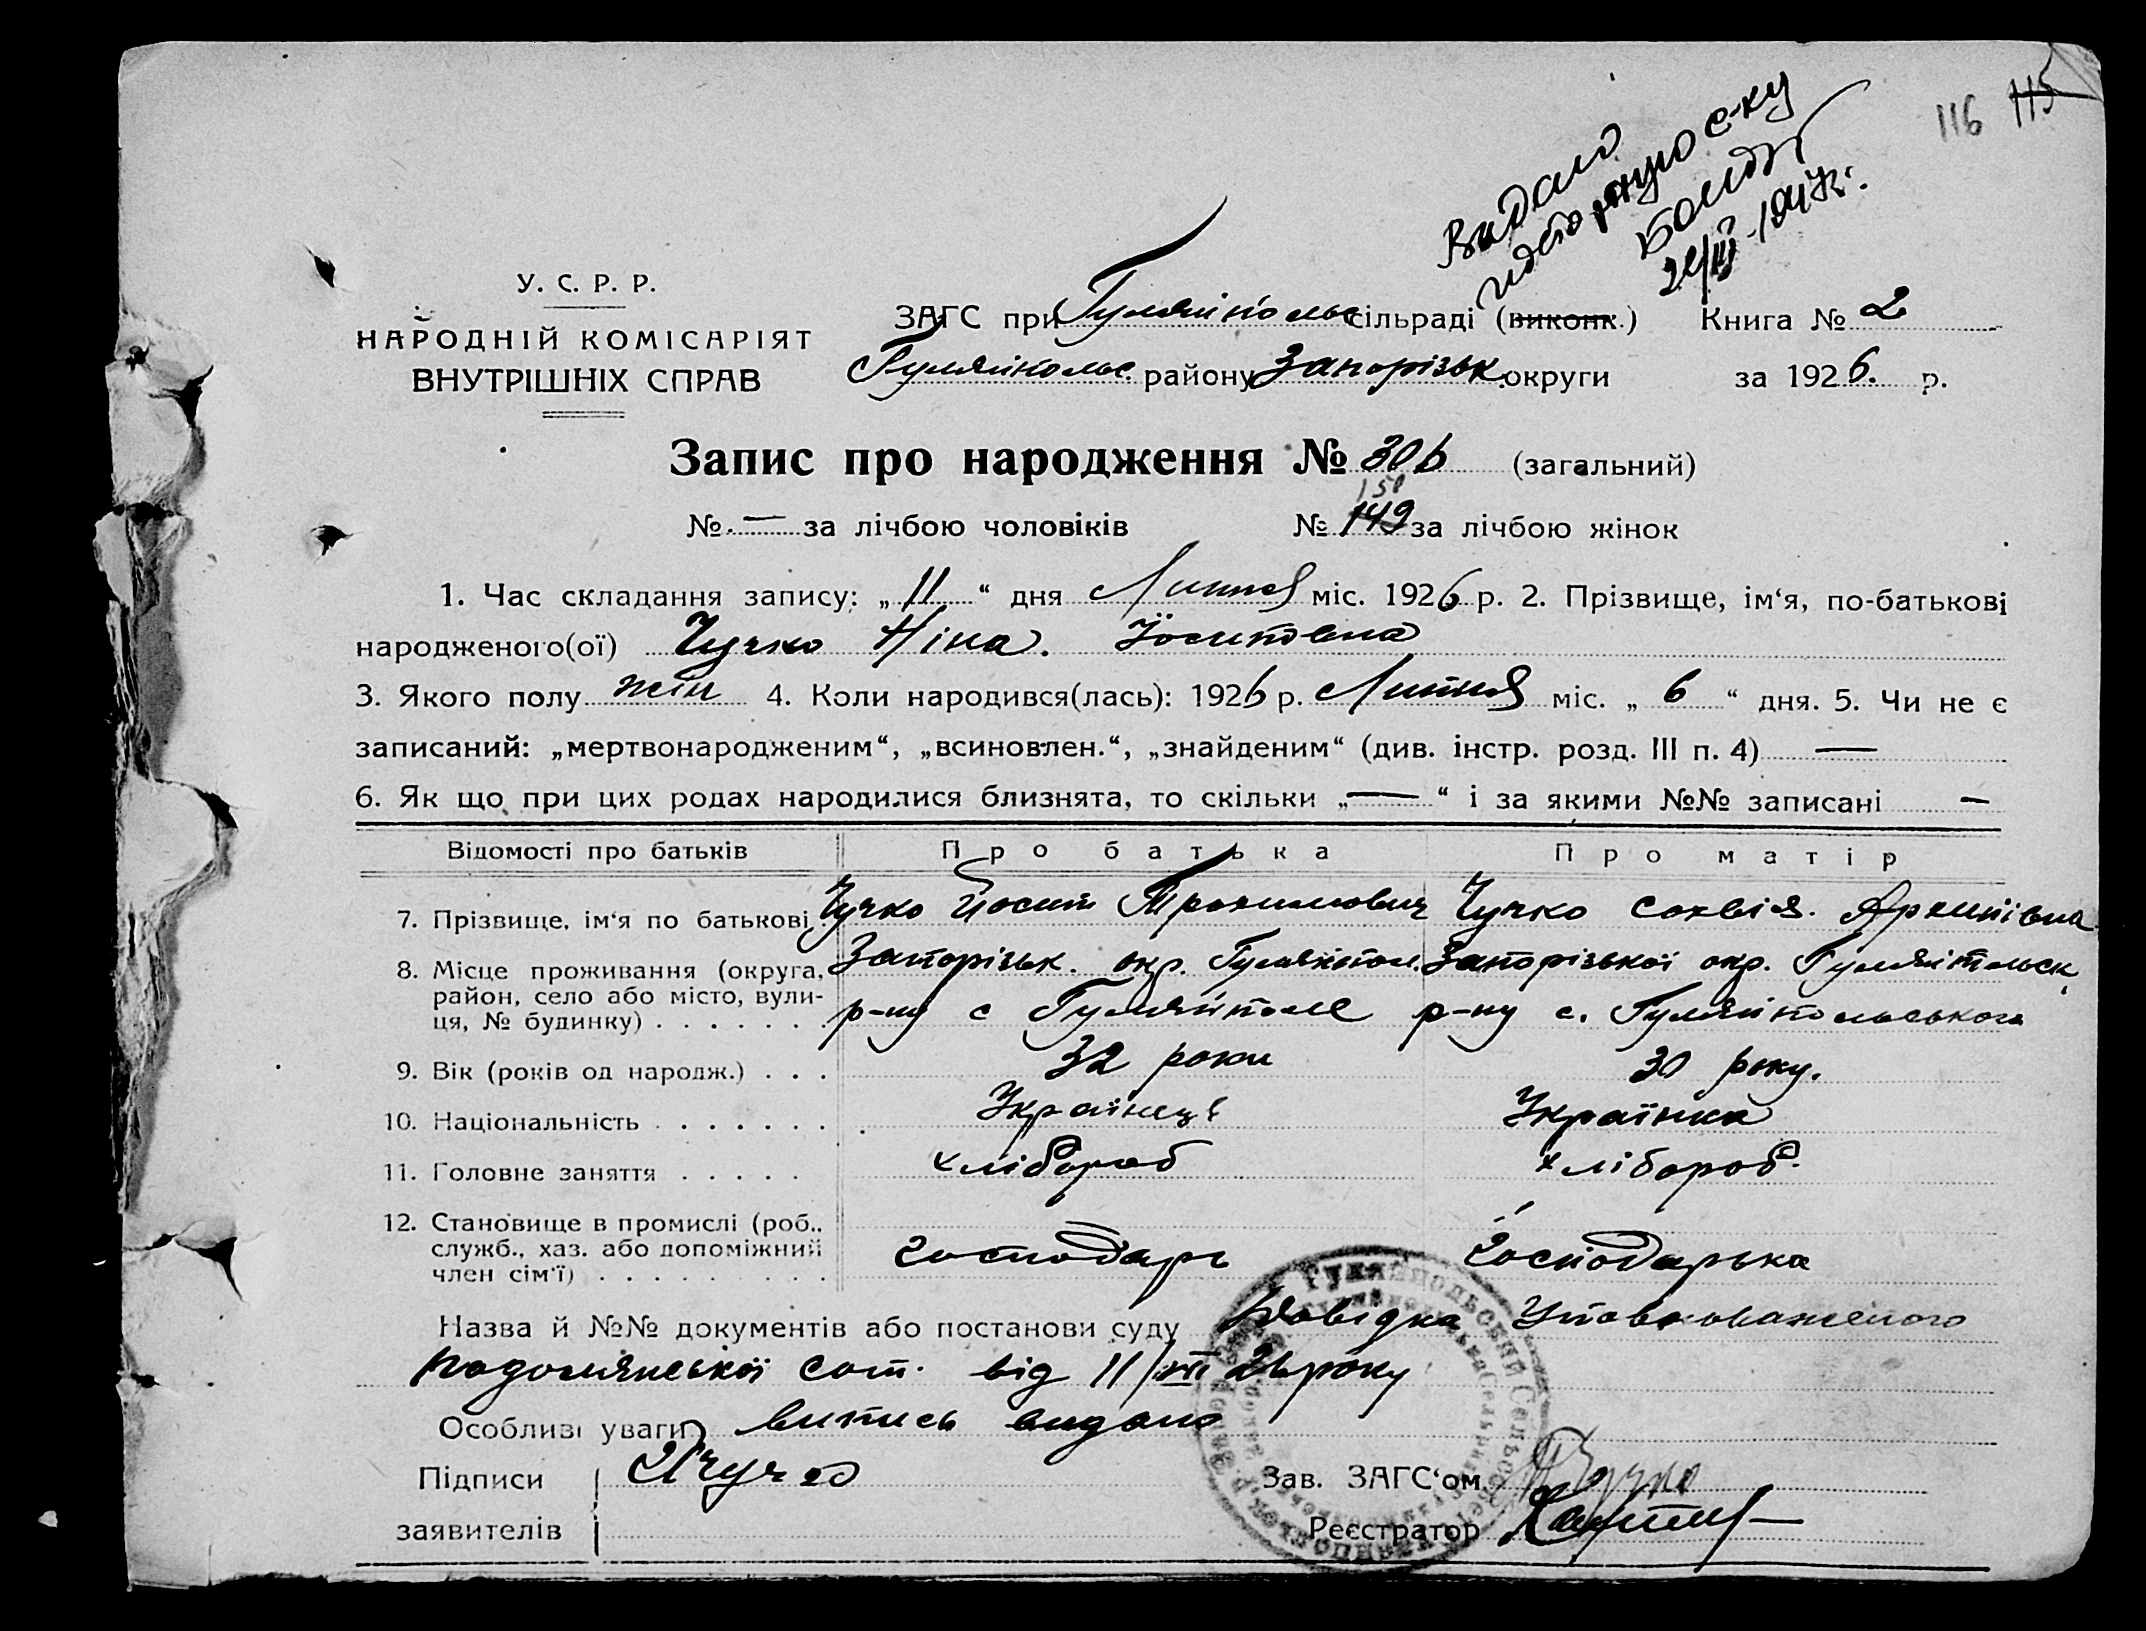 116 115
Видано
повторную с-ку
24/III-1947г.
У. С. Р. Р.
НАРОДНІЙ КОМІСАРІЯТ
ВНУТРІШНІХ СПРАВ
ЗАГС при Гуляйпольс сільраді (виконк.) Книга № 2
Гуляйпольс. району Запорізьк. округи за 1926. р.
Запис про народження № 306 (загальний)
150
№ — за лічбою чоловіків № 149 за лічбою жінок
1. Час складання запису: „ 11 “ дня Липня міс. 1926 р. 2. Прізвище, ім‘я, по-батькові
народженого(ої) Чучко Ніна. Йосипівна
3. Якого полу жін 4. Коли народився(лась): 1926 р. Липня міс. „ 6 “ дня. 5. Чи не є
записаний: „мертвонародженим“, „всиновлен.“, „знайденим“ (див. інстр. розд. III п. 4) —
6. Як що при цих родах народилися близнята, то скільки „ — “ і за якими №№ записані —
Відомості про батьків Про батька Про матір
7. Прізвище, ім‘я по батькові Чучко Йосип Трохимович Чучко Сохвія. Архипівна
8. Місце проживання (округа, Запорізьк. окр. Гуляйпол. Запорізької окр. Гуляйпільськ.
район, село або місто, вули- р-ну с Гуляйполе р-ну с. Гуляйпольського
ця, № будинку) . . . . . . .
9. Вік (років од народж.) . . . 32 роки 30 року.
10. Національність . . . . . . . Українець Українка
11. Головне заняття . . . . . хлібороб хлібороб.
12. Становище в промислі (роб.,
служб., хаз. або допоміжний господарь господарька
член сім‘ї) . . . . . . . . .
Назва й №№ документів або постанови суду Довідка Уповноваженого
Подолянської сот. від 11/VII 26 року
Особливі уваги випись видано
Підписи Чучко Зав. ЗАГС‘ом
заявителів Реєстратор